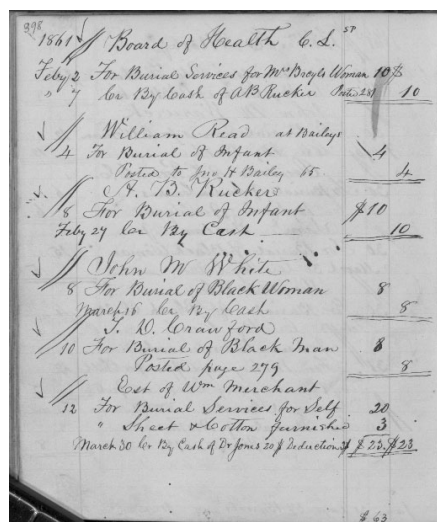 398
1861 Board of Health C. S.
Feby 2 For Burial Services for Mrs Woman 10 $
" 7 Cr By Cash of A B Rucker Posted 281 10
William Read at Baileys
4 For Burial of Infant 4
Posted to Jno H Bailey 65 4
A. B. Rucker
8 For Burial of Infant $10
Feby 27 Cr By Cash 10
John M White
8 For Burial of Black Woman 8
March 16 Cr By Cash 8
T. D. Crawford
10 For Burial of Black Man 8
Posted page 279 8
Est of Wm Merchant
12 For Burial Services for Self 20
" Sheet & Cotton furnished 3
March 30 Cr By Cash of Dr Jones 20 $ Deduction $ 23 $23
$ 63